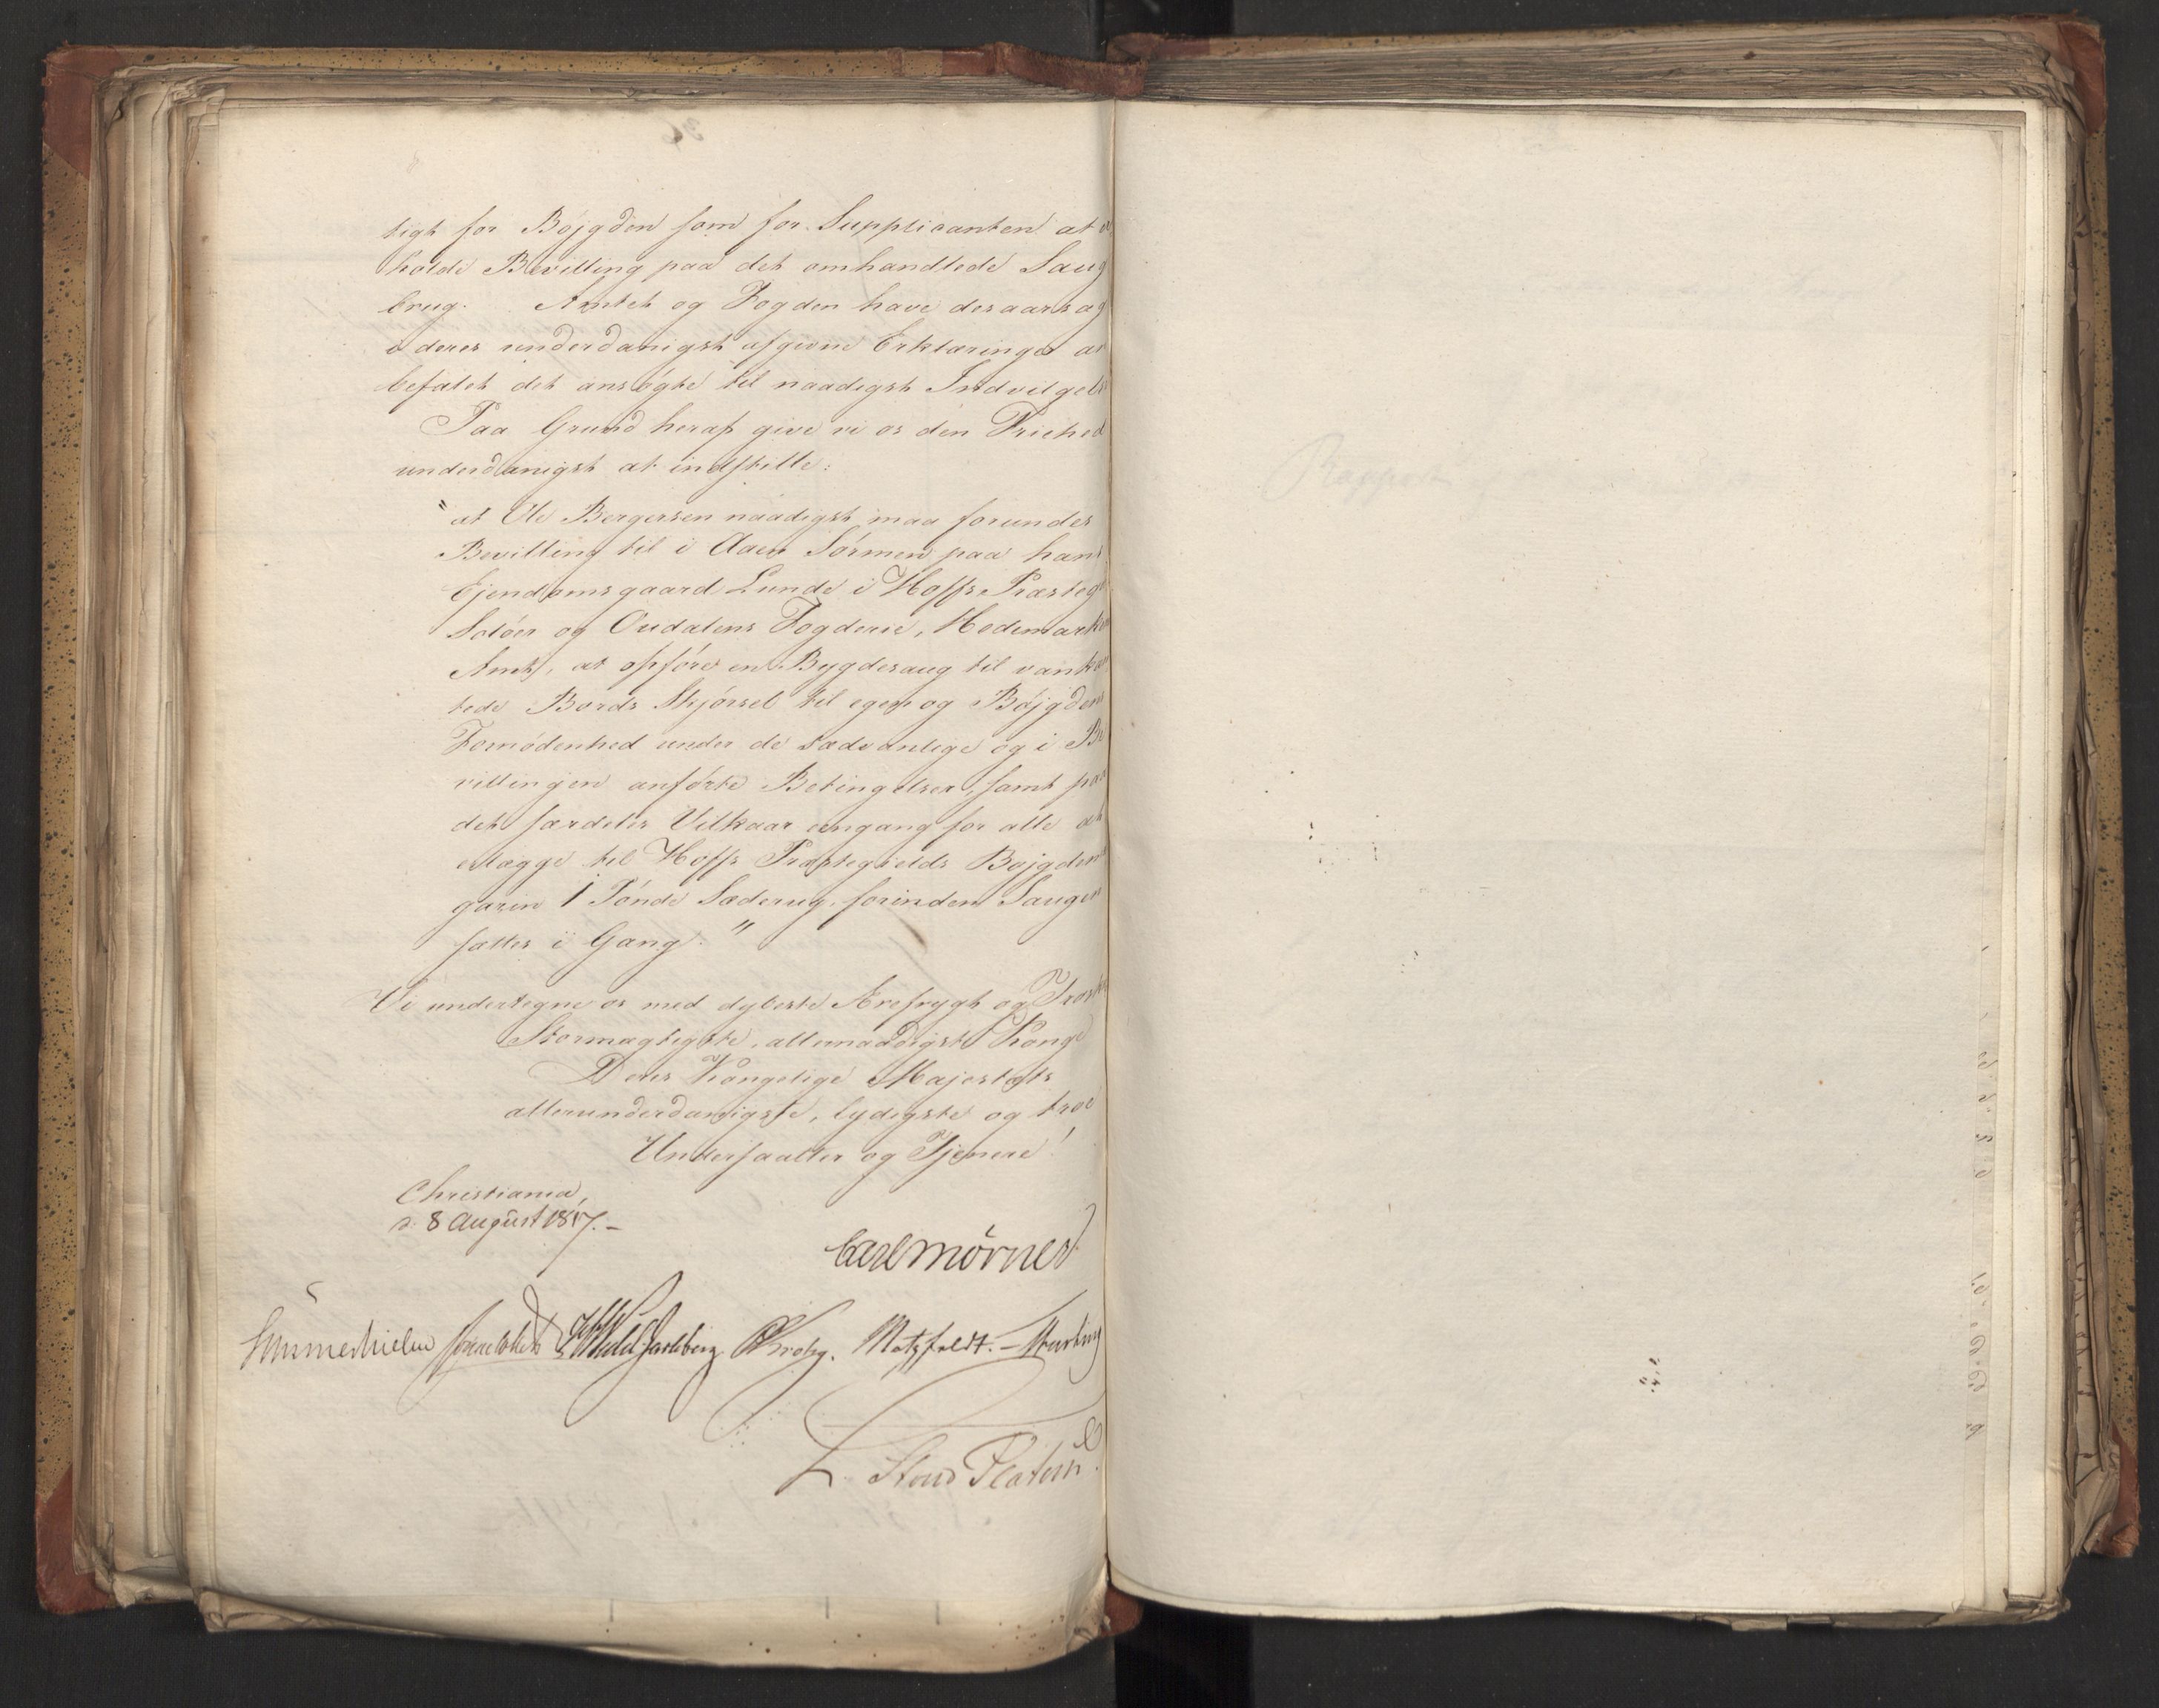 tigt for Bøjgden som for Supplicanten at
holde Bevilling paa det omhandlede Saug
brug. Amtet og Fogden have desaarsag
i deres underdanigst afgivne Erklæringer an
befalet det ansøgte til naadigst Indvilgelse
Paa Grund heraf give vi os den Friehed
underdanigst at indstille:
"at Ole Bergersen naadigst maa forundes
Bevilling til i Aaen Sørmen paa hans
Ejendomsgaard Lunde i Hoffs Præsteg
Soløer og Oudalens Fogderie, Hedemarkens
Amt, at opføre en Bygdesaug til vankan
tede Bords Skjørsel til egen og Bøjgdens
Fornødenhed under de sædvanlige og i Be
villingen anførte Betingelser, samt paa
det særdeles Vilkaar eengang for alle at
erlægge til Hoffs Præstegields Bøjgdema
gazin 1 Tønde Sæderug, forinden Saugen
sættes i Gang."
Vi undertegne os med dybeste Ærefrygt og Troskab
Stormægtigste, allernaadigste Konge
Deres Kongelige Majestæts
allerunderdanigste, lydigste og troe
Undersaatter og Tjenere!
Christiania,
d: 8 August 1817.-
Carl Mörner
Sommerhielm Wedel Jarlsberg Krohg. Motzfeldt.-
L. Stoud Platou
Rapport